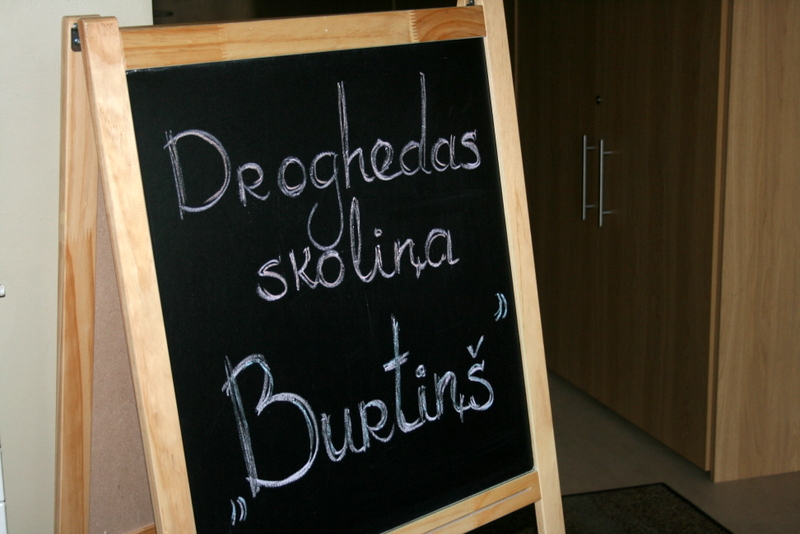 Droghedas
skoliņa
„Burtiņš”